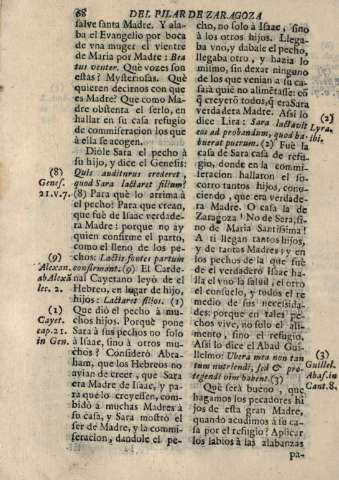 68 DEL PILAR DE ZARAGOZA
salve santa Madre. Y ala-
ba el Evangelio por boca
de vna muger el vientre
de Maria por Madre: Bea
tus venter. Què vozes son
estas? Mysteriosas. Què
quieren decirnos con que
es Madre? Que como Ma-
dre obstenta el serlo, en
hallar en su casa refugio
de commiseracion los que
à ella se acogen.
Diòle Sara el pecho à
su hijo, y dice el Genesis:
Quis auditurus crederet,
quod Sara lactaret filium?
(8) Para què lo arrima à
el pecho? Para que crean,
que fuè de Isaac verdade-
ra Madre: porque no ay
quien confirme el parto,
como el lleno de los pe-
chos: Lactis fontes partum
confirmant. (9) El Carde-
nal Cayetano leyò de el
Hebreo, en lugar de hijo,
hijos: Lactaret filios. (1)
Què diò el pecho à mu-
chos hijos. Porquè pone
Sara à sus pechos no solo
à Isaac, sino à otros mu-
chos? Considerò Abra-
ham, que los Hebreos no
avian de creer, que Sara
era Madre de Isaac, y pa-
ra que lo creyessen, com-
bidò à muchas Madres à
su casa, y Sara mostrò el
ser de Madre, y la commi-
seracion, dandole el pe-
(8)
Genes.
21. v. 7.
(9)
Alexan.
ab Alexã
ler. 2.
(1)
Cayet.
cap. 21.
in Gen.
cho, no solo à Isaac, sino
à los otros hijos. Llega-
ba vno, y dabale el pecho,
llegaba otro, y hazia lo
mismo, sin dexar ninguno
de los que venian a su ca-
sa, à quiè no alimētasse: cõ
q̃ creyerõ todos, q̃ era Sara
verdadera Madre. Asi lo
dice Lira: Sara lactavit
eos ad probandum, quod ha-
buerat puerum. (2) Fuè la
casa de Sara casa de refu-
gio, donde en la commi-
seracion hallaron el so-
corro tantos hijos, cono-
ciendo, que era verdade-
ra Madre. O casa la de
Zaragoza! No de Sara, si-
no de Maria Santissima!
A ti llegan tantos hijos,
y de tantas Madres; y en
los pechos de la que fuè
de el verdadero Isaac ha-
lla el vno la salud, el otro
el consuelo, y todos el re
medio de sus necesida-
des: porque en tales pe-
chos vive, no solo el ali-
mento, sino el refugio.
Asi lo dice el Abad Gui-
llelmo: Ubera mea non tan
tum nutriendi, sed & pro-
tegendi vim habent. (3)
Què serà bueno, que
hagamos los pecadores hi
jos de esta gran Madre,
quando acudimos à su ca-
sa por el refugio? Aplicar
los labios à las alabanzas
(2)
Lyra,
ibi.
(3)
Guillel.
Abas. in
Cant. 8.
pa-